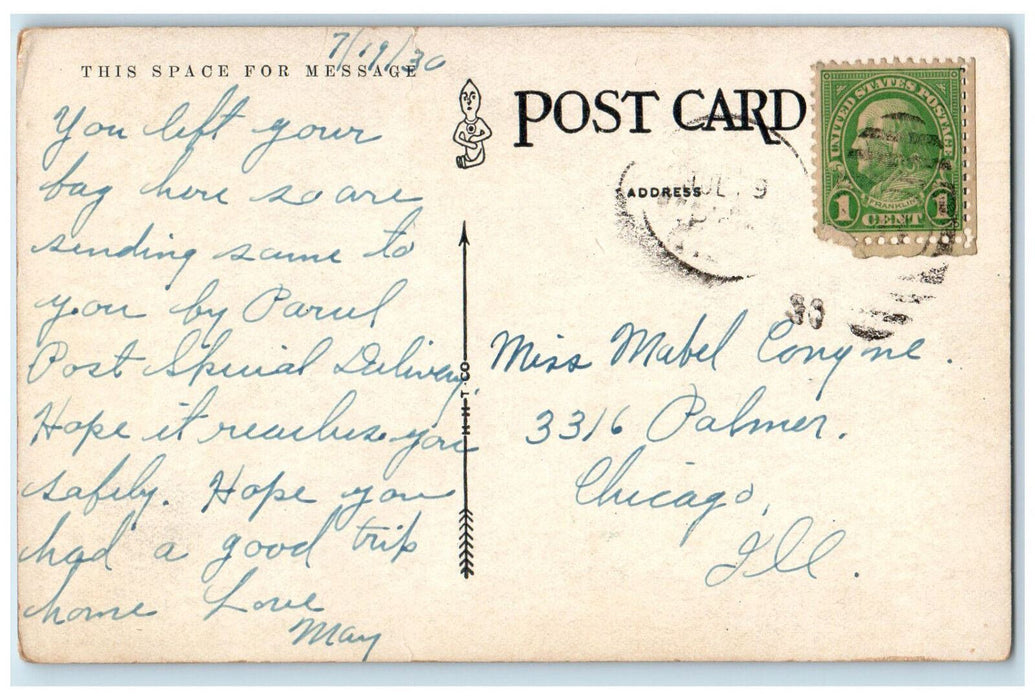 7/19/30
THIS SPACE FOR MESSAGE
You left your
bag here so are
sending same to
you by Parcel
Post Special Delivery.
Hope it reaches you
safely. Hope you
had a good trip
home Love
May
H-H-T-CO
POST CARD
ADDRESS
JUL 19
UNITED STATES POSTAGE
FRANKLIN
1 CENT 1
Miss Mabel Conyne.
3316 Palmer.
Chicago,
Ill.